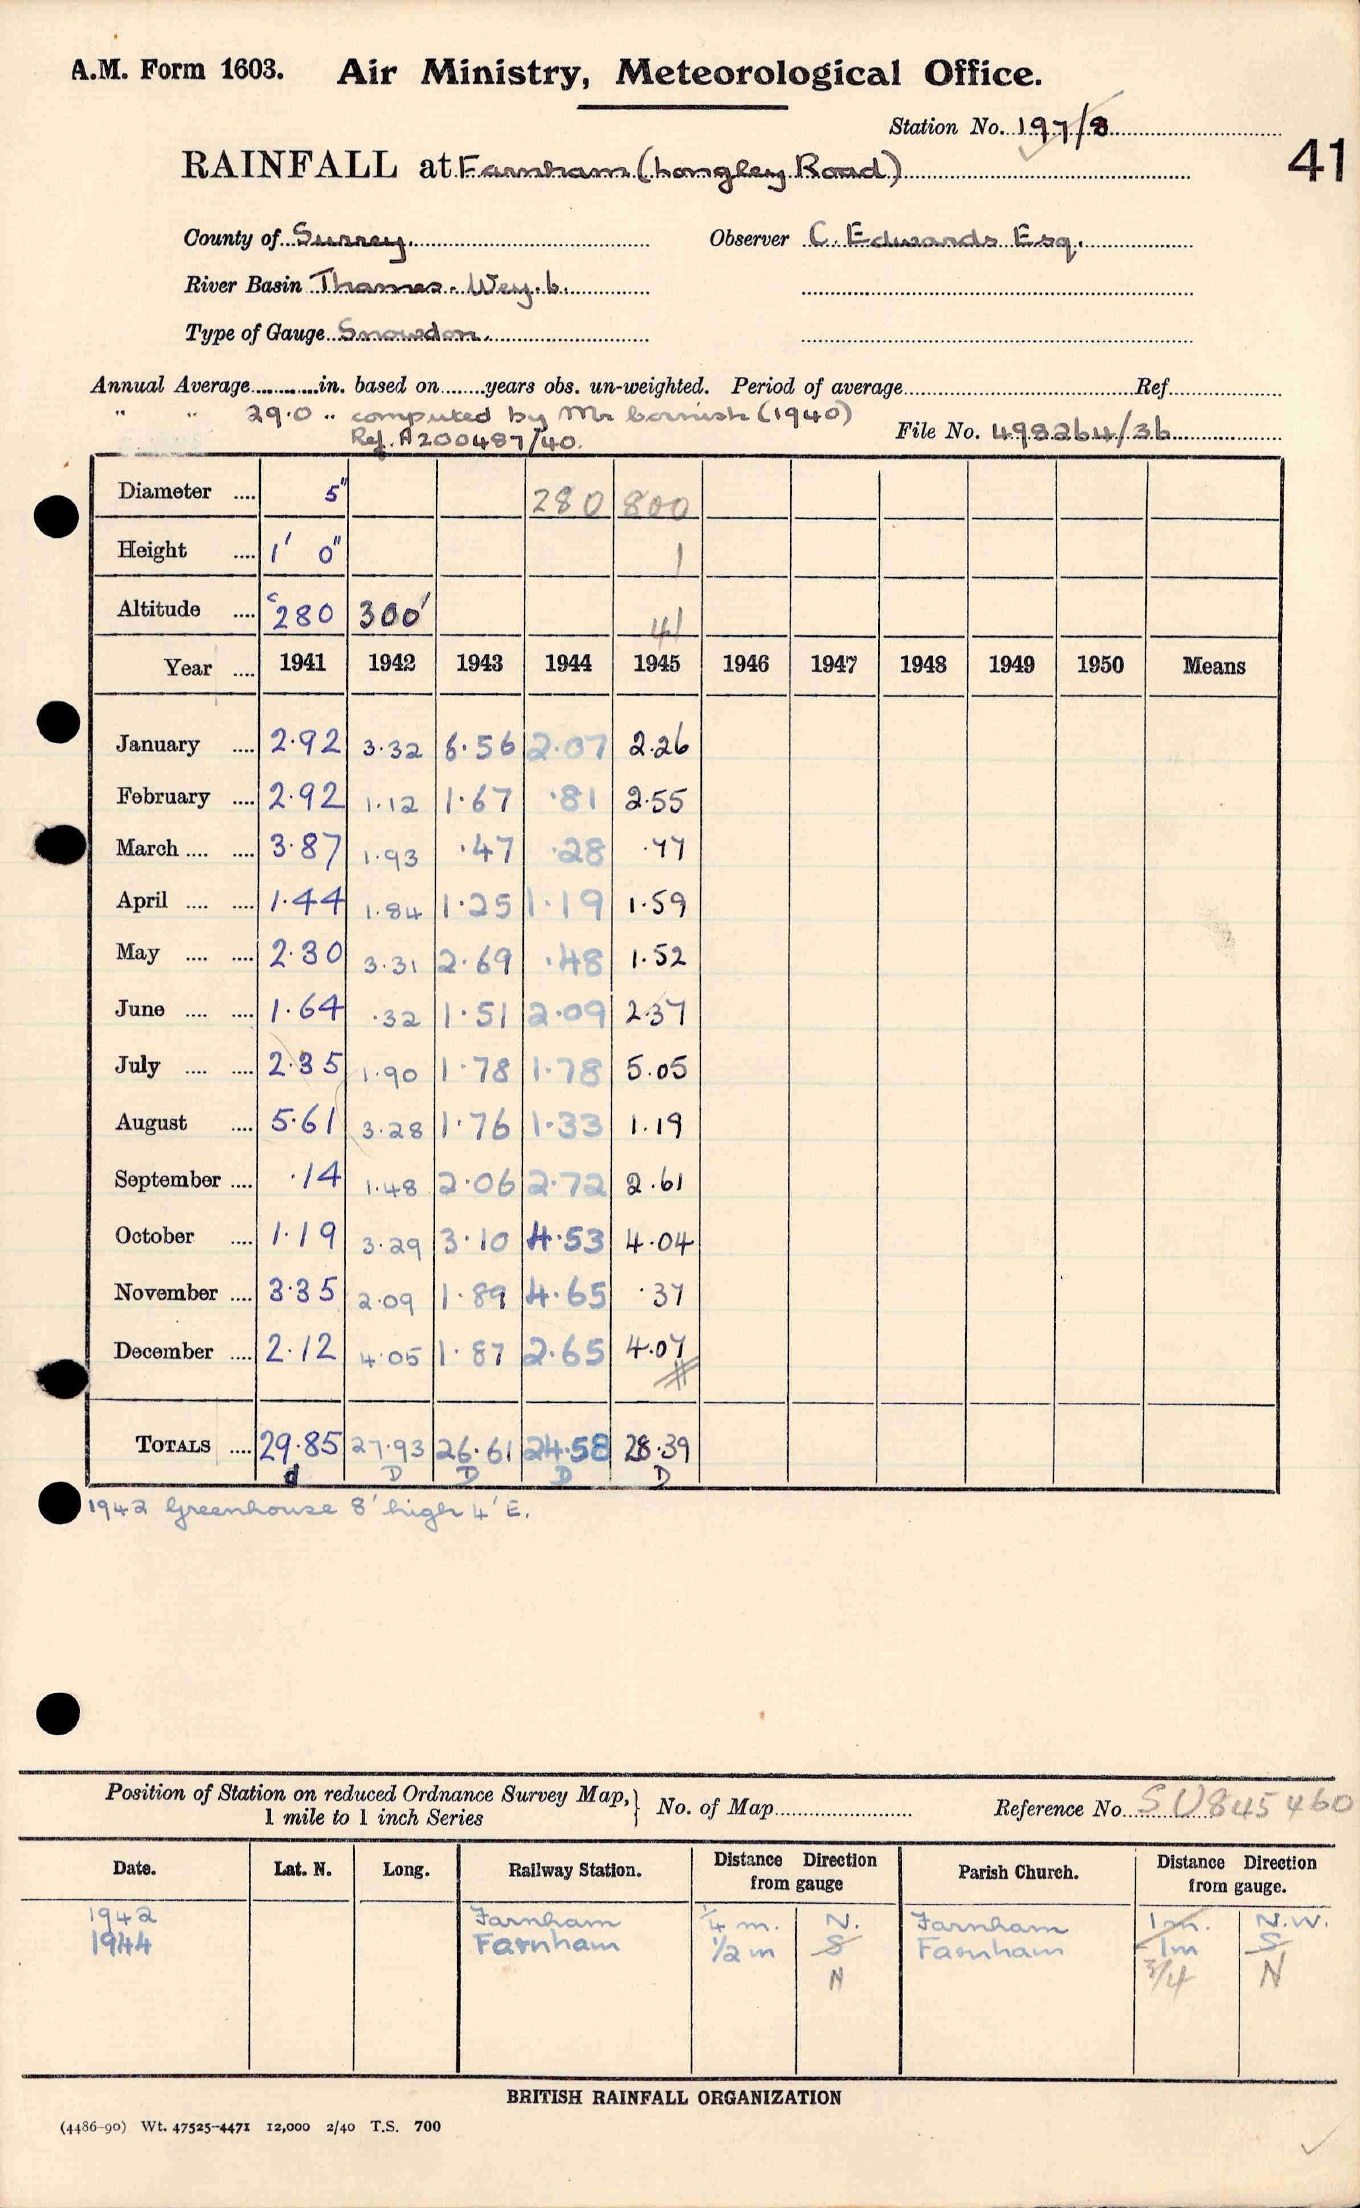 A.M. Form 1603. Air Ministry, Meteorological Office.
Station No. 197/8
41
RAINFALL at Farnham (Longley Road)
County of Surrey Observer C. Edwards Esq.
River Basin Thames - Wey. b.
Type of Gauge Snowdon.
Annual Average in. based on years obs. un-weighted. Period of average Ref
" " 29.0 " computed by Mr Cornish (1940)
Ref. A200487/40. File No. 498264/36
Diameter 5" 280 800
Height 1' 0" 1
Altitude c 280 300' 41
Year 1941 1942 1943 1944 1945 1946 1947 1948 1949 1950 Means
January 2.92 3.32 6.56 2.07 2.26
February 2.92 1.12 1.67 .81 2.55
March 3.87 1.93 .47 .28 .77
April 1.44 1.84 1.25 1.19 1.59
May 2.30 3.31 2.69 .48 1.52
June 1.64 .32 1.51 2.09 2.37
July 2.35 1.90 1.78 1.78 5.05
August 5.61 3.28 1.76 1.33 1.19
September .14 1.48 2.06 2.72 2.61
October 1.19 3.29 3.10 4.53 4.04
November 3.35 2.09 1.89 4.65 .37
December 2.12 4.05 1.87 2.65 4.07
TOTALS 29.85 27.93 26.61 24.58 28.39
d D D D D
1942 Greenhouse 8' high 4' E.
Position of Station on reduced Ordnance Survey Map,
1 mile to 1 inch Series
No. of Map Reference No. SU845460
Date. Lat. N. Long. Railway Station. Distance Direction from gauge Parish Church. Distance Direction from gauge.
1942 Farnham 1/4 m. N. Farnham 1m. N.W.
1944 Farnham 1/2 m S Farnham 1m S
N 3/4 N
BRITISH RAINFALL ORGANIZATION
(4486-90) Wt. 47525-4471 12,000 2/40 T.S. 700